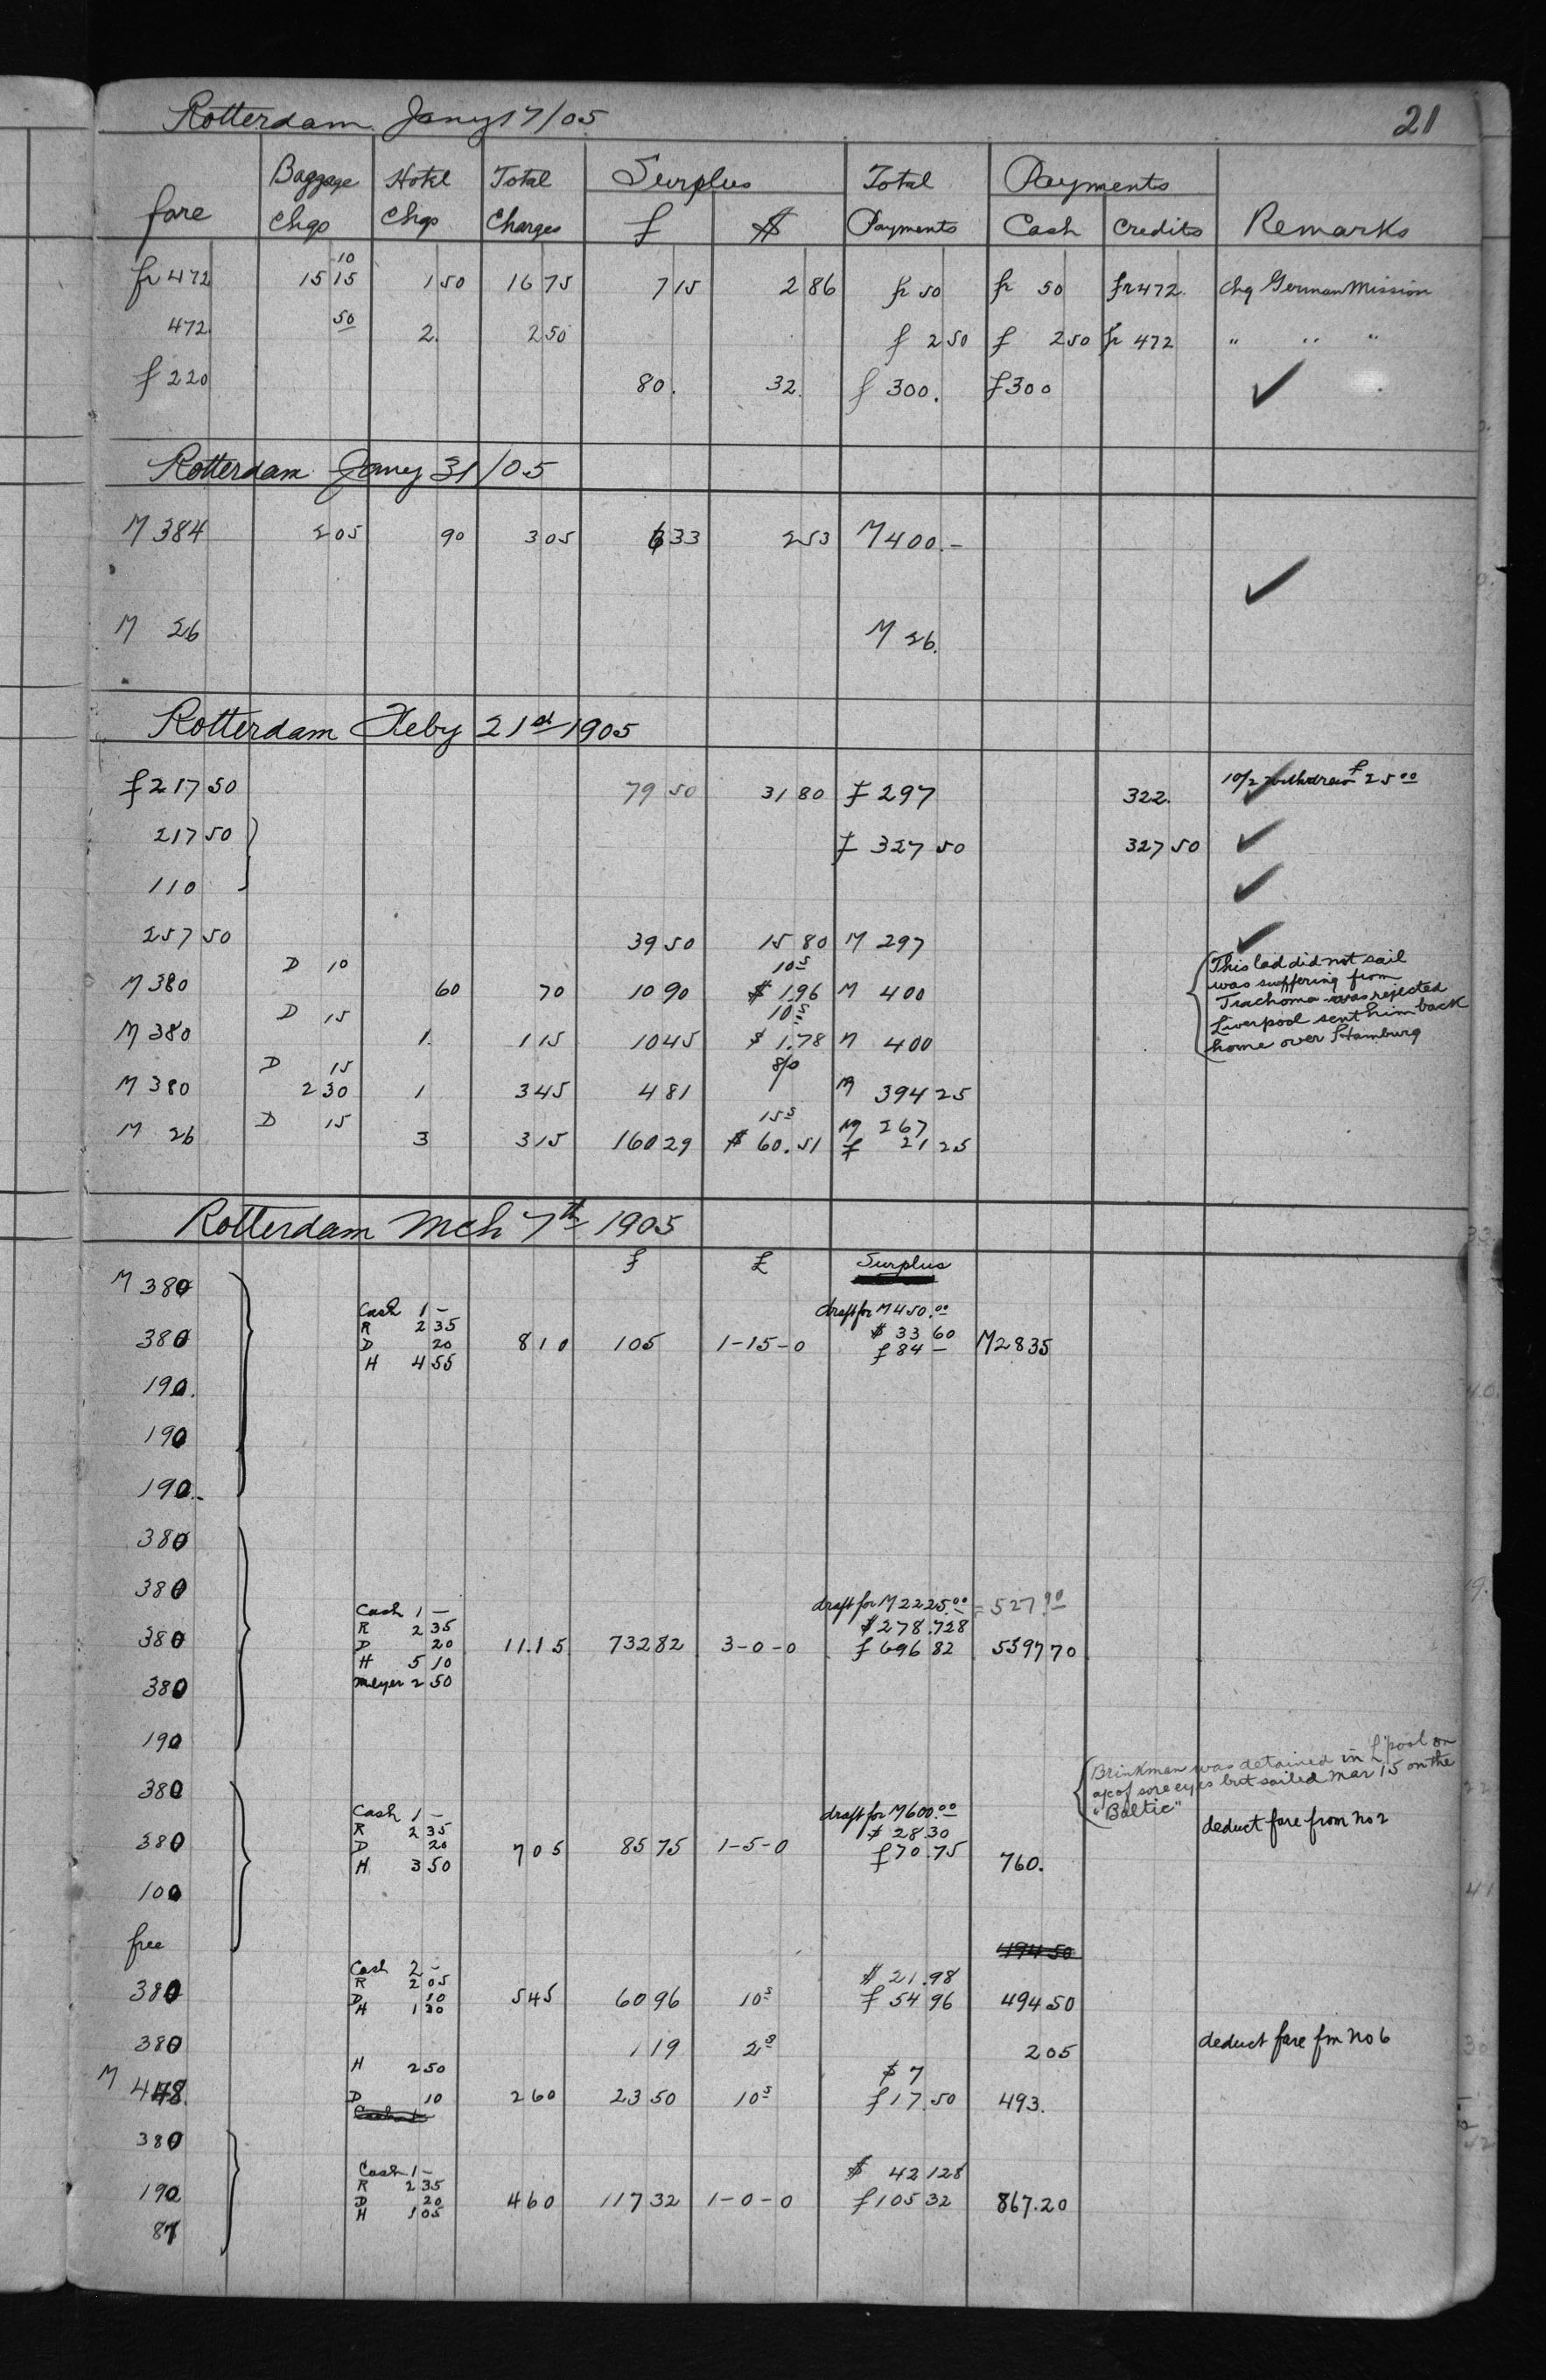 Rotterdam Jany 17/05 21
fare Baggage Chgs Hotel Chgs Total Charges Surplus f $ Total Payments Payments Cash Credits Remarks
10
fr 472 15 15 1 50 16 75 7 15 2 86 fr 50 fr 50 fr 472. Chg German Mission
50
472. 2. 2 50 f 2 50 f 2 50 fr 472 " " "
f 220 80. 32. f 300. f 300 ✓
Rotterdam Jany 31/05
M 384 2 05 90 3 05 6 33 2 53 M 400.- ✓
M 26 M 26.
Rotterdam Feby 21st 1905
f 217 50 79 50 31 80 f 297 322. 10/2 withdrew f 25 00
217 50 f 327 50 327 50 ✓
110 ✓
257 50 39 50 15 80 M 297 ✓
D 10 10s
M 380 60 70 10 90 $ 1.96 M 400
This lad did not sail
was suffering from
Trachoma was rejected
Liverpool sent him back
home over Hamburg
D 15 10s
M 380 1. 1 15 10 45 $ 1.78 M 400
D 15 8/0
M 380 2 30 1 3 45 4 81 M 394 25
D 15 15s M 267
M 26 3 3 15 160 29 $ 60.51 f 21 25
Rotterdam Mch 7th 1905
f £ Surplus
M 380
Cash 1 - draft for M 450.00
R 2 35 $ 33 60
380 D 20 8 10 105 1-15-0 f 84 - M 2835
H 4 55
190.
190
190.
380
380
Cash 1 - draft for M 2225.00 = 527.90
R 2 35 $ 278.728
380 D 20 11.15 732 82 3-0-0 f 696 82 5597 70
H 5 10
380 Meyer 2 50
190
Brinkman was detained in L'pool on
a/c of sore eyes but sailed Mar 15 on the
"Baltic"
380
Cash 1 - draft for M 600.00 deduct fare from no 2
R 2 35 $ 28.30
380 D 20 7 05 85 75 1-5-0 f 70.75 760.
H 3 50
100
free 494 50
Cash 2 -
R 2 05 $ 21.98
380 D 10 5 45 60 96 10s f 54 96 494 50
H 1 30
380 1 19 2s 205 deduct fare fm no 6
H 2 50 $ 7
M 448. D 10 2 60 23 50 10s f 17.50 493.
380
Cash 1 - $ 42 128
R 2 35
190 D 20 4 60 117 32 1-0-0 f 105 32 867.20
H 1 05
87